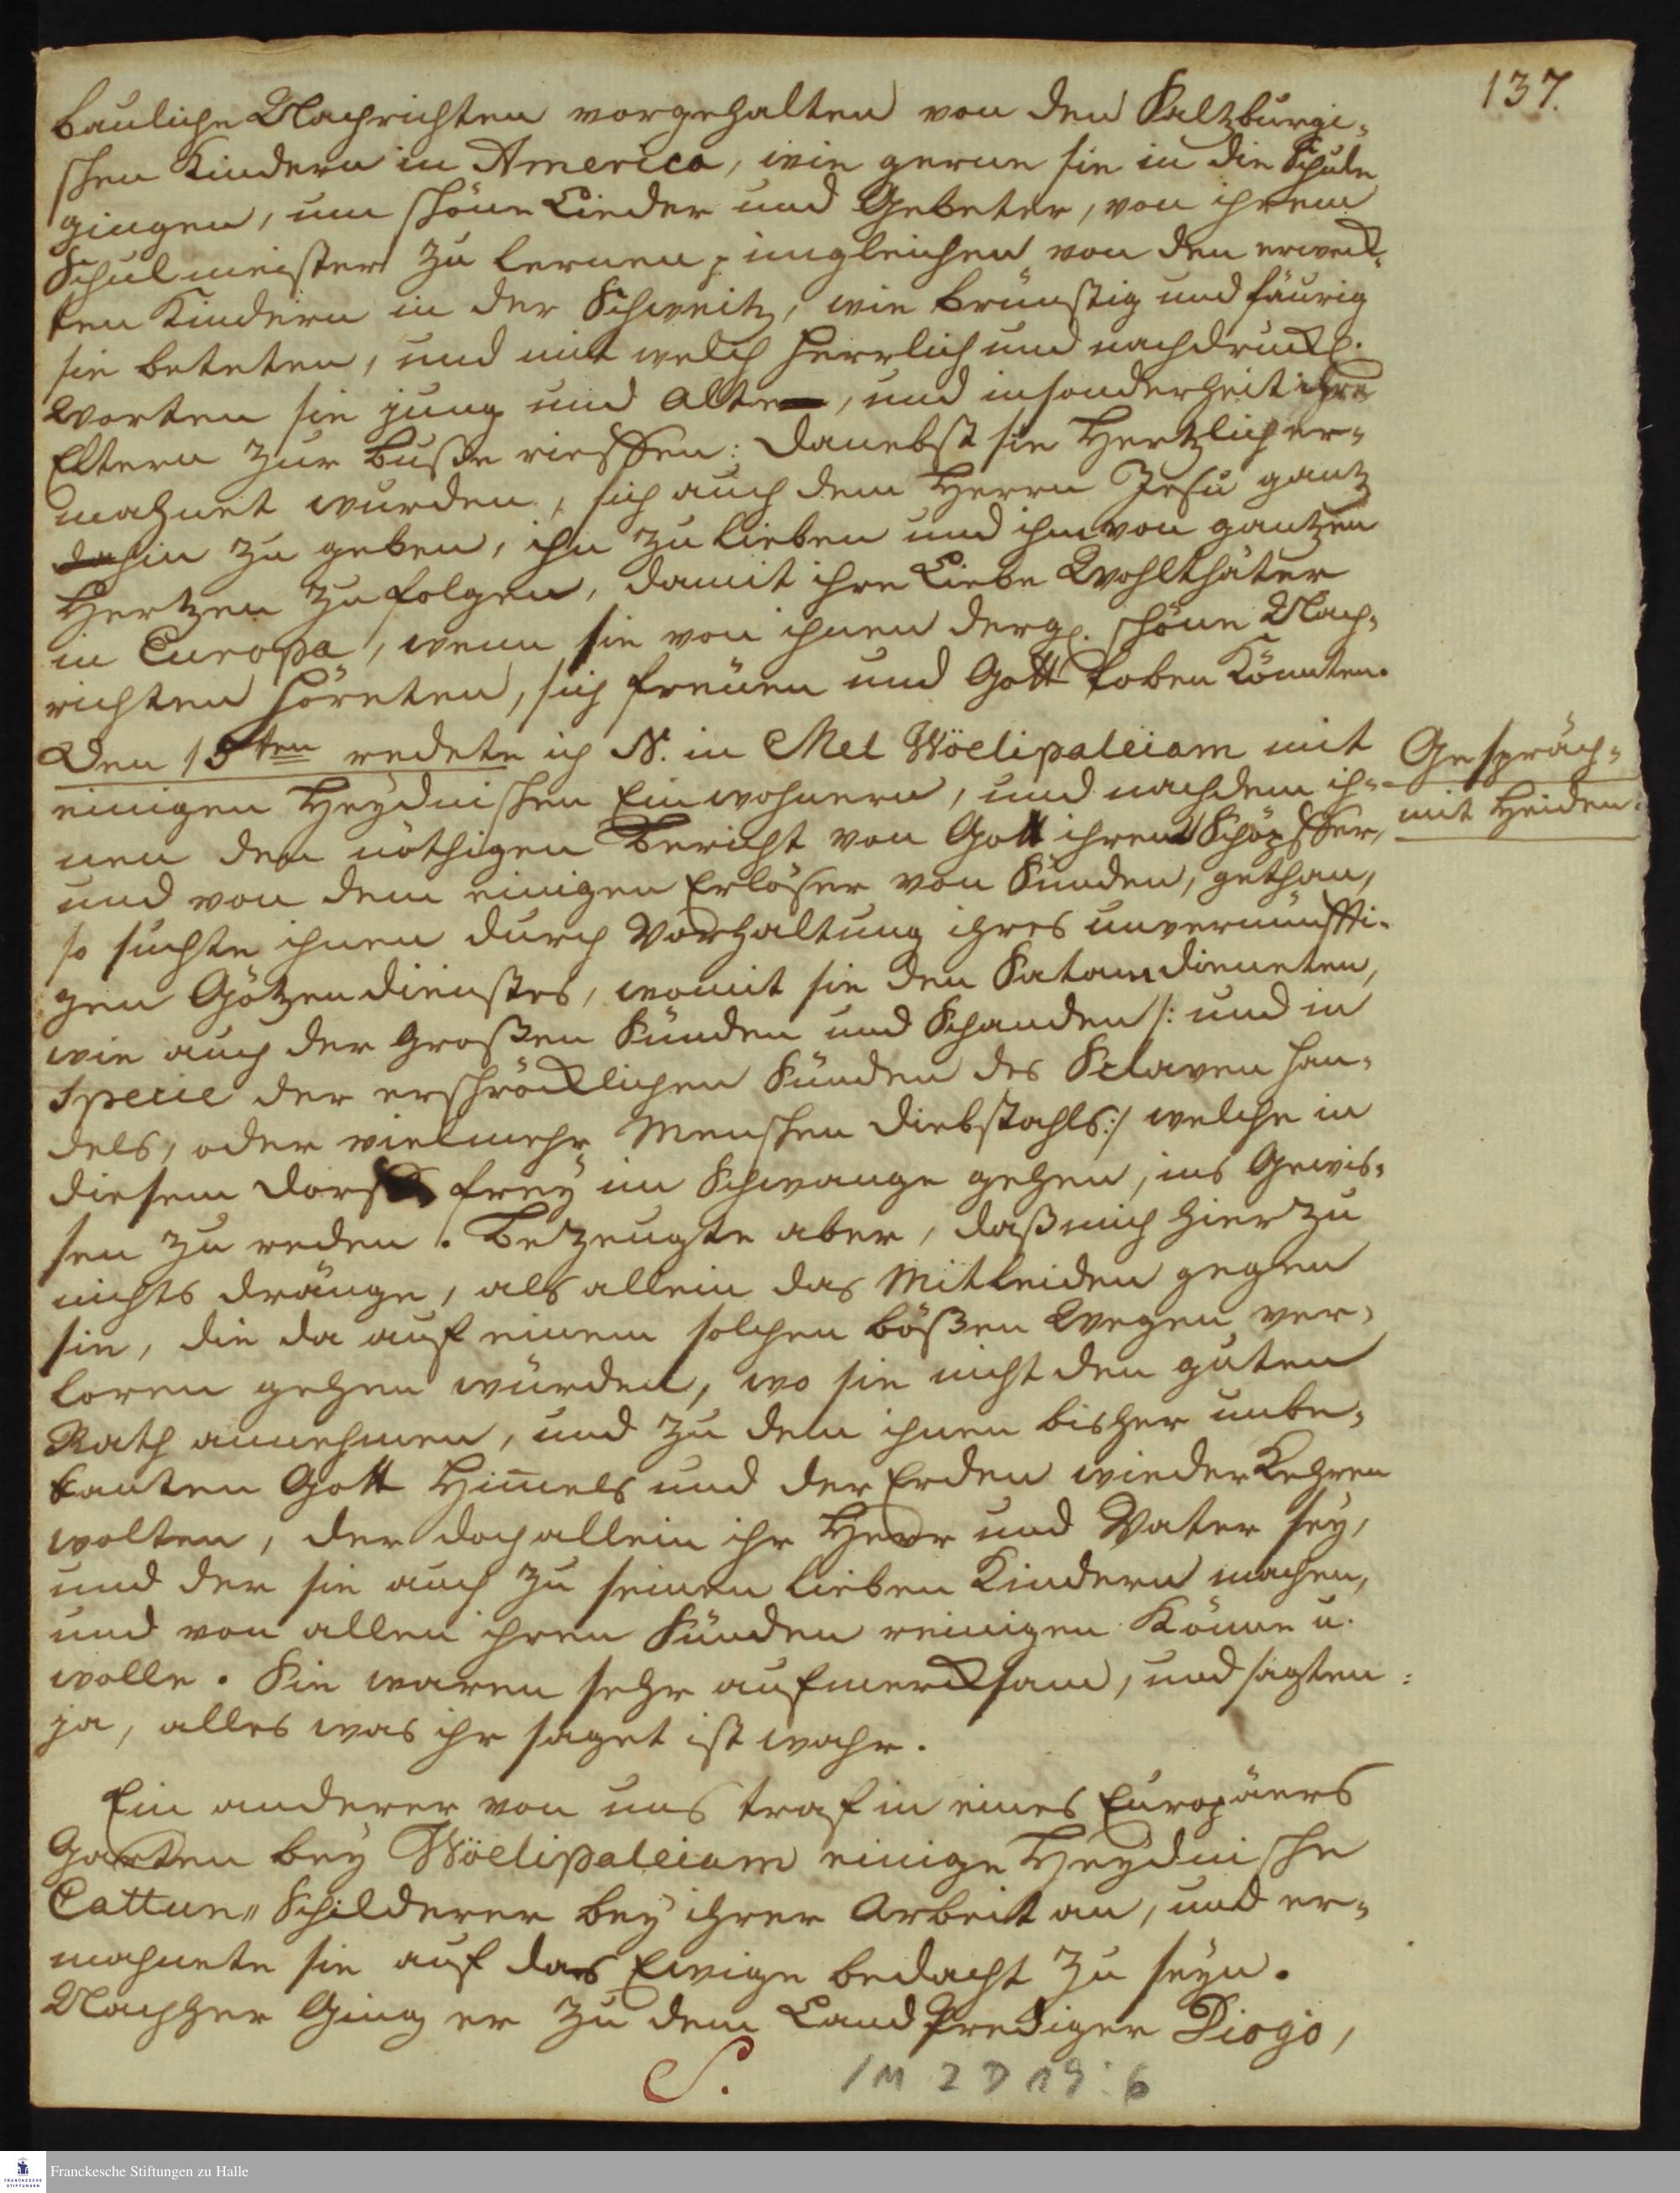 137.
bauliche Nachrichten vorgehalten von den Saltzburgi-
schen Kindern in America, wie gerne sie in die Schule
gingen, um schöne Lieder und Gebeter, von ihrem
Schulmeister zu lernen; imgleichen von den erweck-
ten Kindern in der Schweitz, wie brünstig und fäurig
sie beteten, und mit welch herrlich und nachdruckl.
Worten sie jung und alte, und insonderheit ihre
Eltern zur Buße rieffen: Danebst sie Hertzlich er-
mahnet wurden, sich auch dem Herrn Jesu gantz
dahin zu geben, ihn zu lieben und ihm von gantzen
Hertzen zu folgen, damit ihre Liebe Wohlthäter
in Europa, wenn sie von ihnen dergl. schöne Nach-
richten höreten, sich freuen und Gott loben könnten.
Den 15ten redete ich N. in Mel Wöelipaleiam mit
einigen Heydnischen Einwohnern, und nachdem ih-
nen den nöthigen Bericht von Gott ihrem Schöpffer,
und von dem einigen Erlöser von Sünden, gethan,
so suchte ihnen durch Vorhaltung ihres unvernünffti-
gen Götzendienstes, womit sie den Satan dieneten,
wie auch der großen Sünden und Schanden /: und in
specie der erschröcklichen Sünden des Sclaven han-
dels, oder vielmehr Menschen Diebstahls :/ welche in
diesem Dorf frey im Schwange gehen, ins Gewis-
sen zu reden. Bezeugte aber, daß mich hierzu
nichts dränge, als allein das Mitleiden gegen
sie, die da auf einem solchen bößen Wegen ver-
loren gehen würden, wo sie nicht den guten
Rath annehmen, und zu dem ihnen bisher unbe-
kanten Gott Him̄els und der Erden wiederkehren
wolten, der doch allein ihr Herr und Vater sey,
und der sie auch zu seinen lieben Kindern machen,
und von allen ihren Sünden reinigen könne u.
wolle. Sie waren sehr aufmercksam, und sagten:
ja, alles was ihr saget ist wahr.
Ein anderer von uns traf in eines Europäers
Garten bey Wöelipaleiam einige Heydnische
Cattun-Schilderer bey ihrer Arbeit an, und er-
mahnete sie auf das Ewige bedacht zu seyn.
Nachher ging er zu dem Land Prediger Diogo,
Gespräch
mit Heiden.
S.
1M 2 D 19:6
FRANCKESCHE
STIFTUNGEN
Franckesche Stiftungen zu Halle